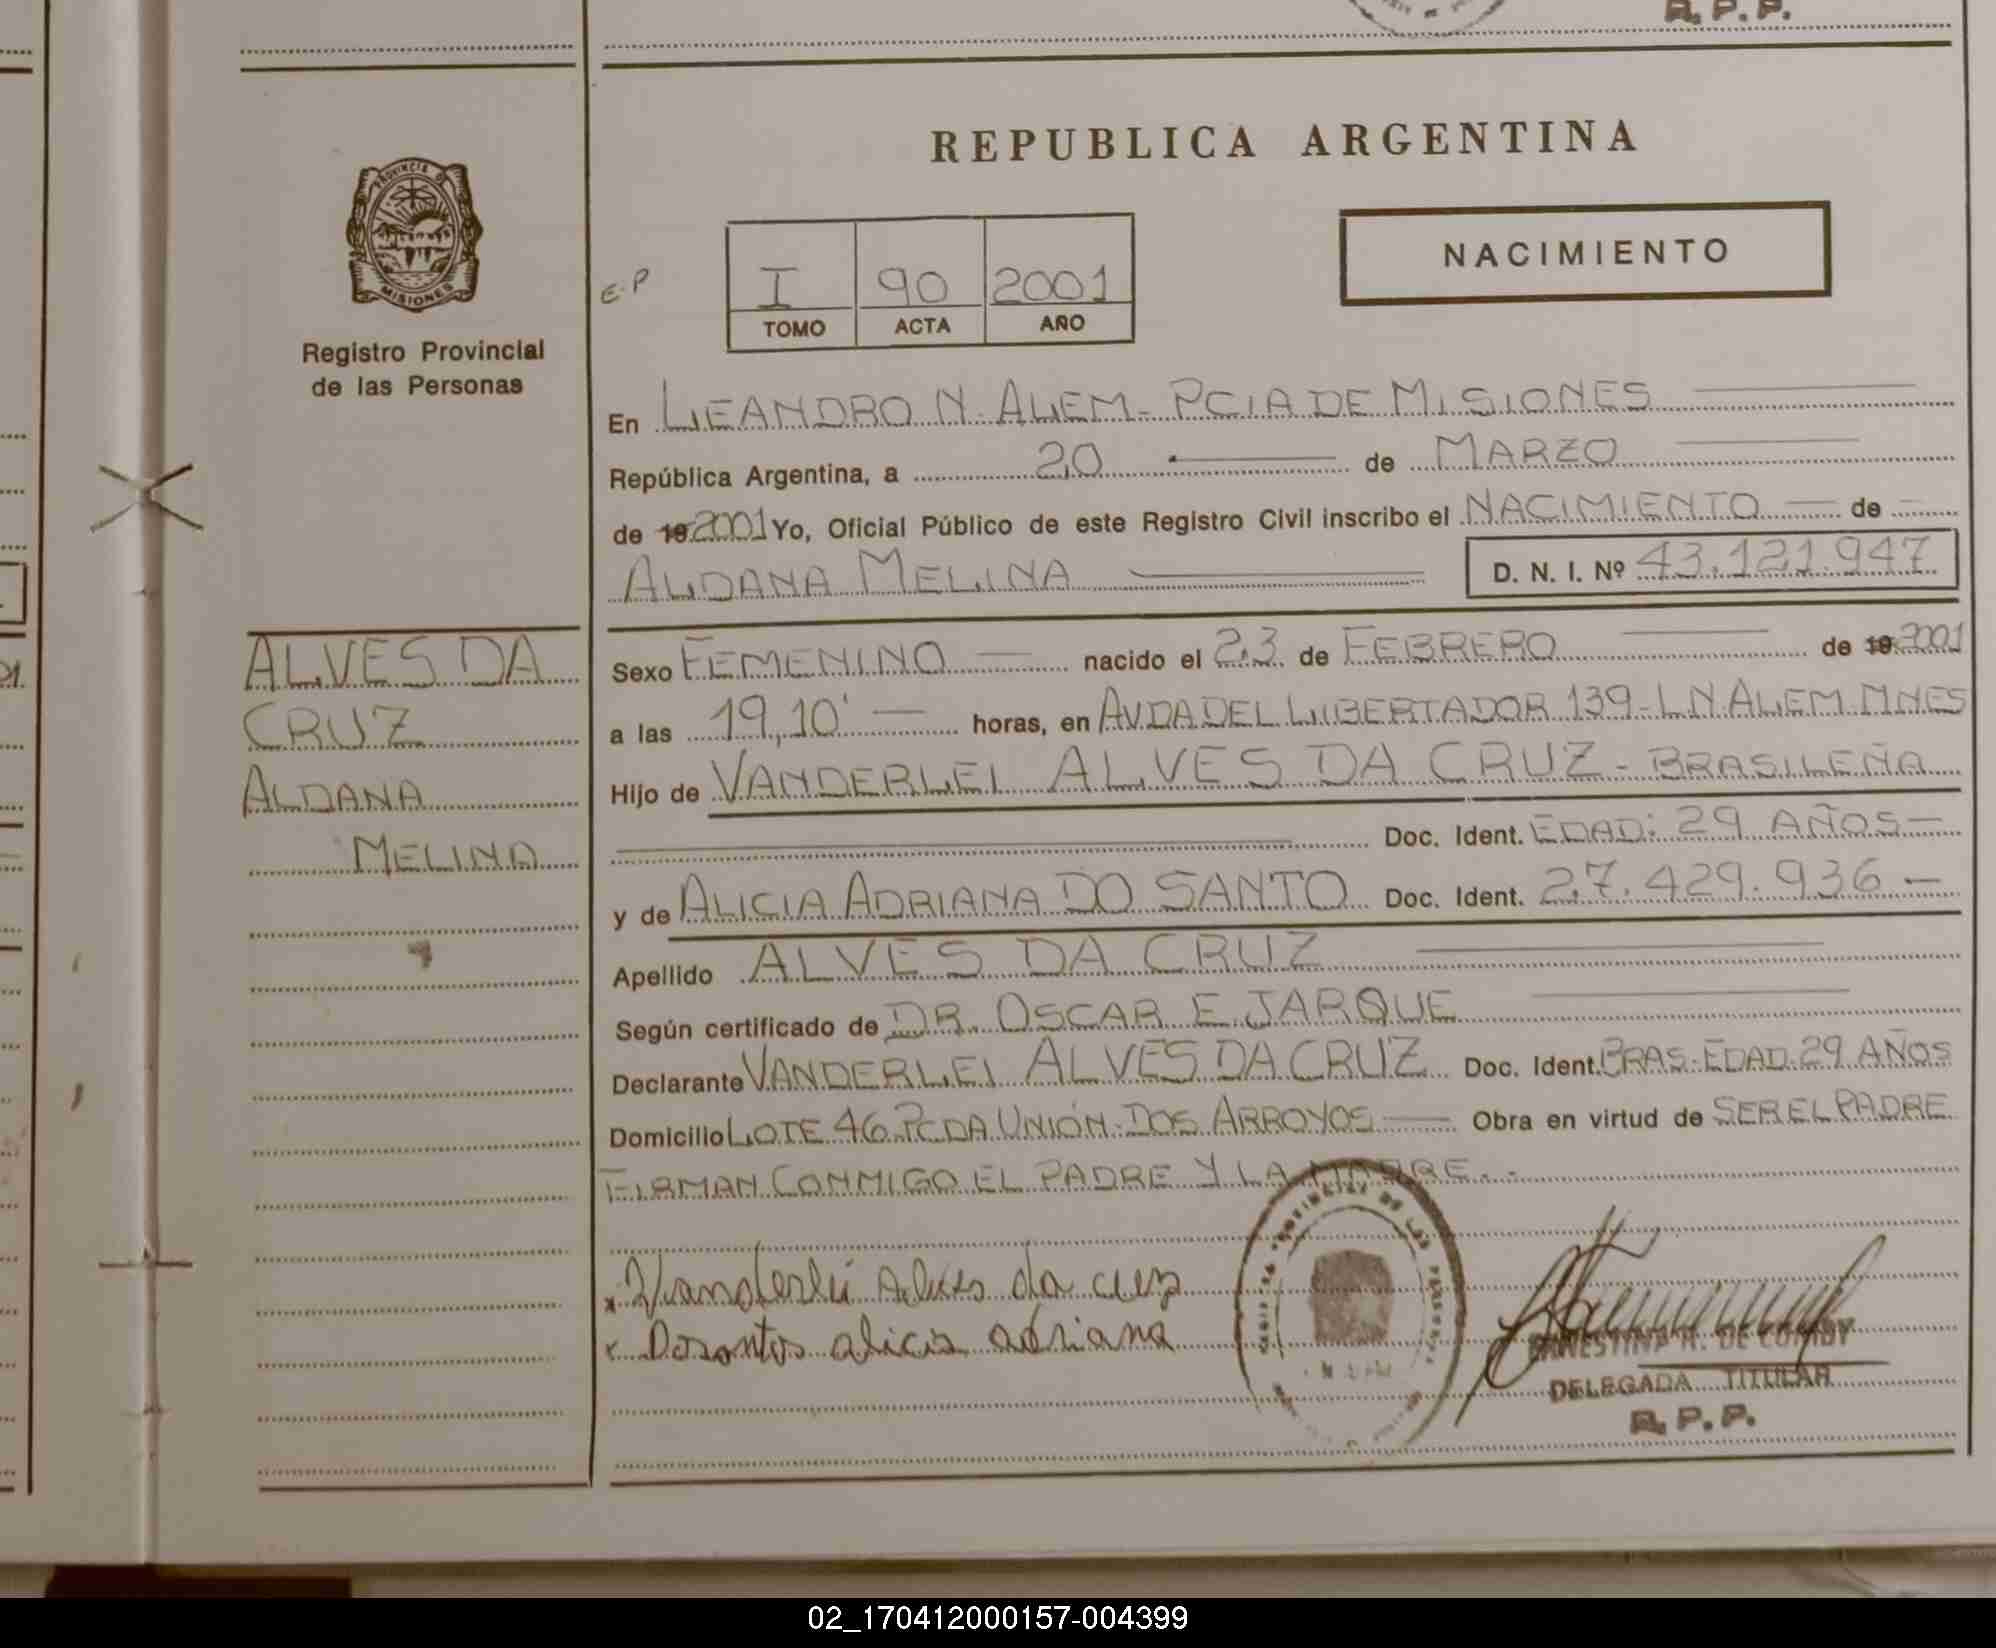 R. P. P.
PROVINCIA DE
MISIONES
Registro Provincial
de las Personas
REPUBLICA ARGENTINA
NACIMIENTO
E.P
I 90 2001
TOMO ACTA AÑO
En LEANDRO N. ALEM - PCIA DE MISIONES
República Argentina, a 20 de MARZO
de 19 2001 Yo, Oficial Público de este Registro Civil inscribo el NACIMIENTO de
ALDANA MELINA D. N. I. Nº 43.121.947
ALVES DA
CRUZ
ALDANA
MELINA
Sexo FEMENINO nacido el 23 de FEBRERO de 19 2001
a las 19,10' horas, en AVDA DEL LIBERTADOR 139 - L N. ALEM MNES
Hijo de VANDERLEI ALVES DA CRUZ - BRASILEÑA
Doc. Ident. EDAD: 29 AÑOS
y de ALICIA ADRIANA DO SANTO Doc. Ident. 27.429.936
Apellido ALVES DA CRUZ
Según certificado de DR. OSCAR E. JARQUE
Declarante VANDERLEI ALVES DA CRUZ Doc. Ident. BRAS. EDAD. 29 AÑOS
Domicilio LOTE 46 PCDA UNIÓN - DOS ARROYOS Obra en virtud de SER EL PADRE
FIRMAN CONMIGO EL PADRE Y LA MADRE
Vanderlei Alves da cruz
Dosantos alicia adriana
DELEGADA TITULAR
R. P. P.
02_170412000157-004399